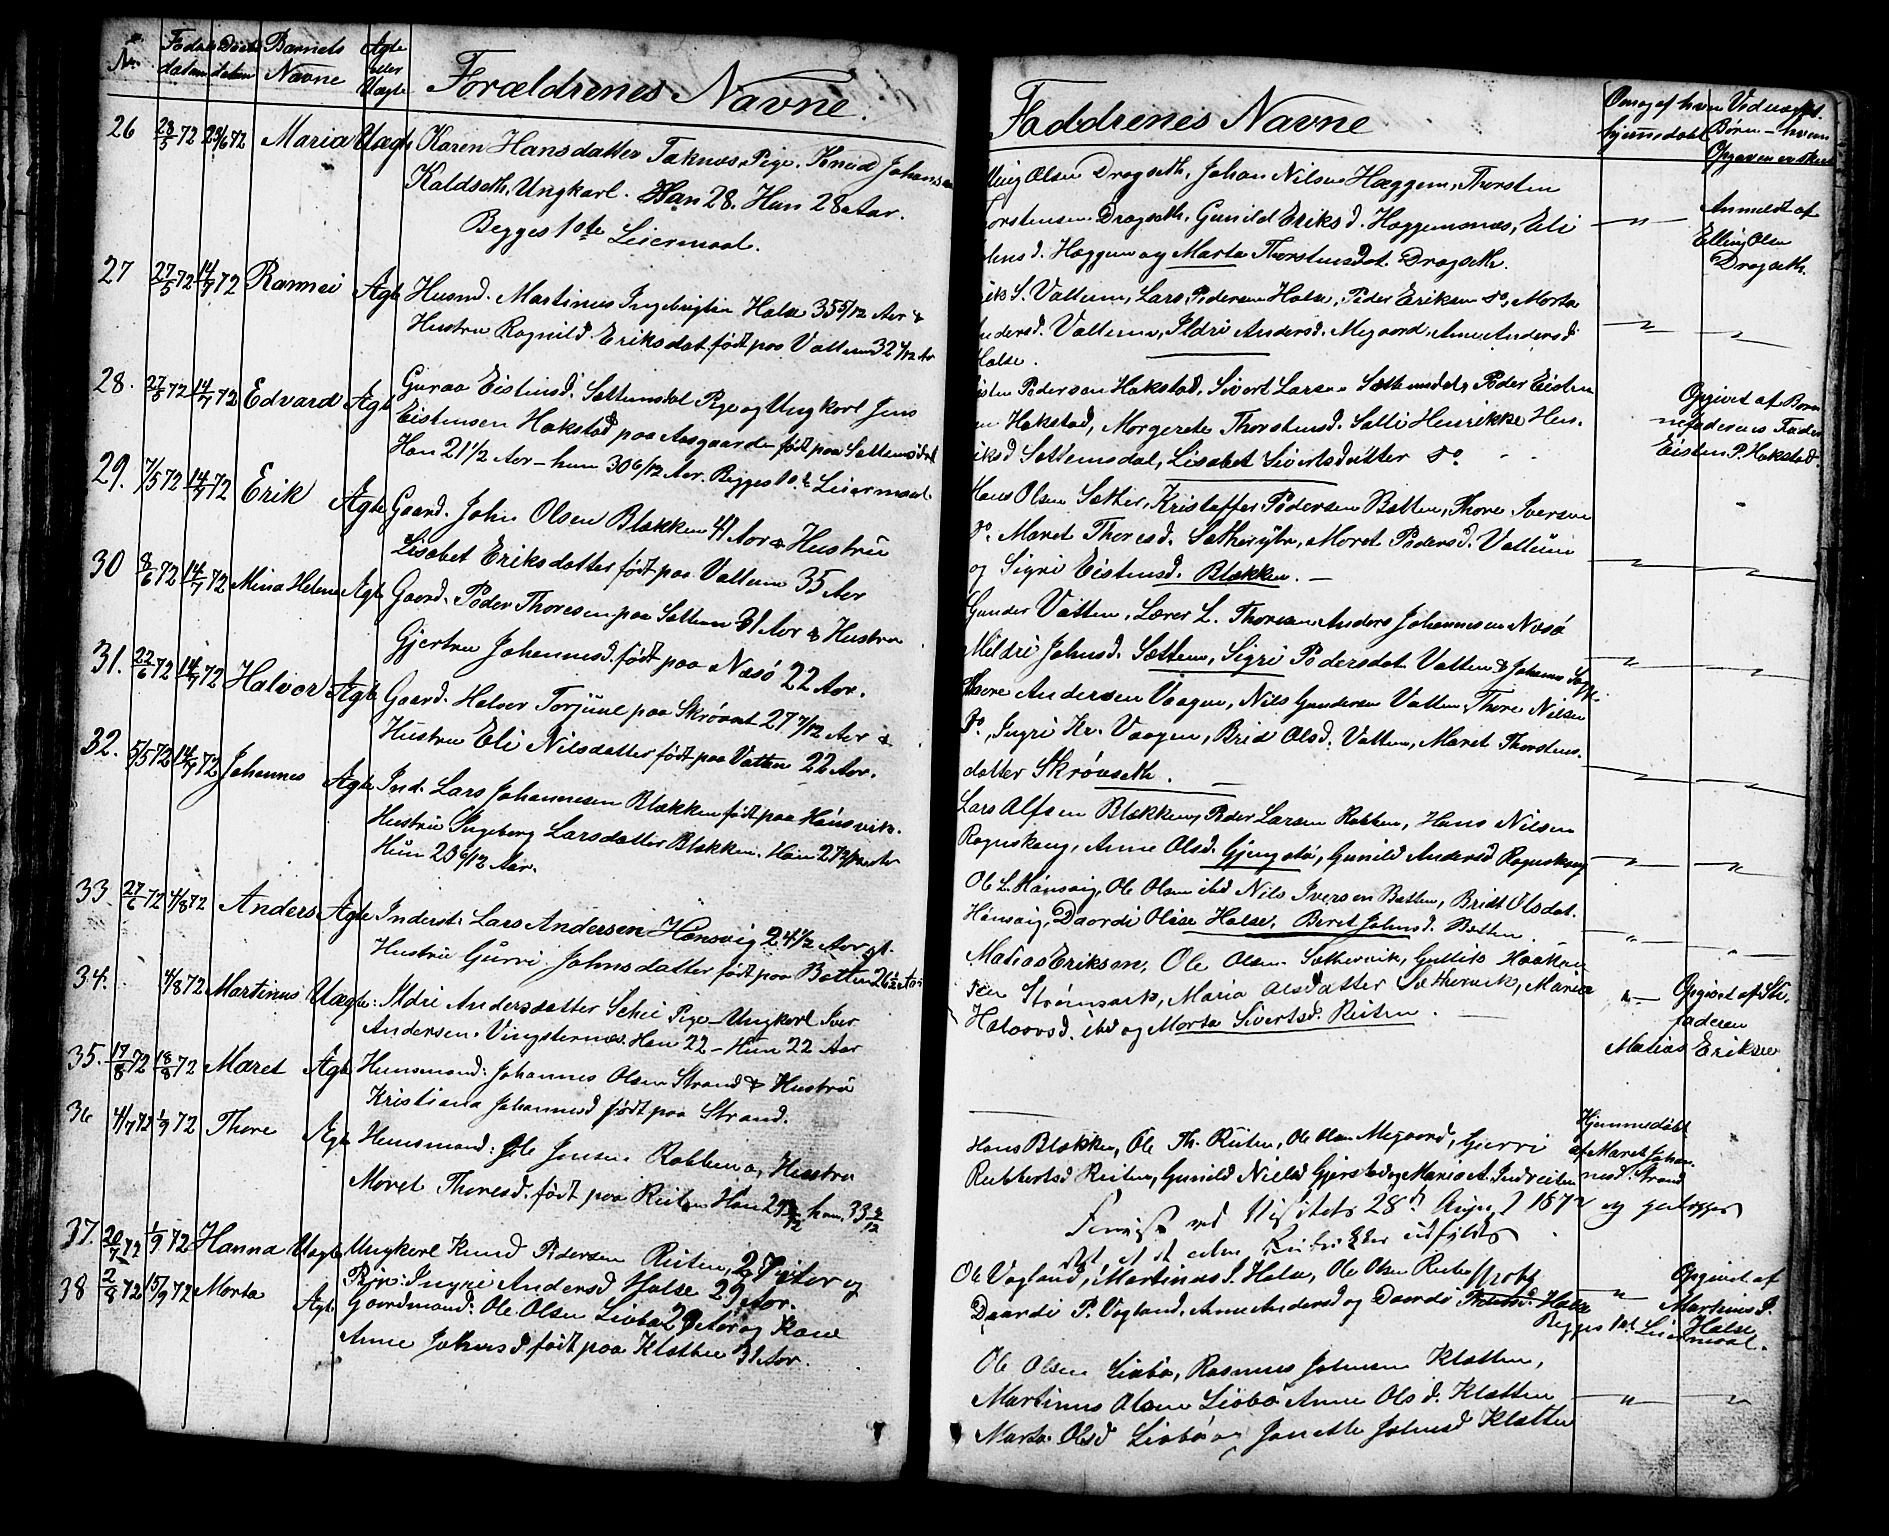 No. Føds. datum Døbt datum Barnets Navne Ægte eller Uægte Forældrenes Navne.
26 28/5 72 23/6 72 Maria Uægt Karen Hansdatter Taknes, Pige. Knud Johansen
Kaldseth, Ungkarl. Han 28. Hun 28 Aar.
Begges 1ste Leiermaal.
27 27/5 72 14/7 72 Rannei Ægte Husmd. Martinus Ingebrigtsn Halse 35 5/12 Aar &
Hustru Ragnild Eriksdat. født paa Vatten 32 4/12 Aar
28. 27/5 72 14/7 72 Edvard Ægt Guraa Eistensd. Sættemsdal Pige og Ungkarl Jens
Eistensen Hakstad paa Aasgaarden født paa Sættemsdal
Han 21 1/2 Aar – hun 30 6/12 Aar. Begges 1ste Leiermaal.
29. 7/5 72 14/7 72 Erik Ægte Gaard. John Olsen Blækken 41 Aar & Hustru
Lisabet Eriksdatter født paa Vatten 35 Aar
30 8/6 72 14/7 72 Mina Helene Ægte Gaard. Peder Thoresen paa Sættem 31 Aar & Hustru
Gjertru Johannesd. født paa Nasö 22 Aar.
31. 22/6 72 14/7 72 Halvor Ægte Gaard. Halvor Torjuul paa Skrøvset 27 7/12 Aar &
Hustru Eli Nilsdatter født paa Vatten 22 Aar.
32. 5/5 72 14/7 72 Johannes Ægte Ind. Lars Johannesen Blækken født paa Hønsvik.
Hustru Ingeborg Larsdatter Blækken. Han 27 Aar
Hun 20 6/12 Aar.
33. 27/6 72 4/8 72 Anders Ægte Inderst: Lars Andersen Hønsvig 24 1/2 Aar og
Hustru Gurri Johnsdatter født paa Batten 26 1/2 Aar
34. 4/8 72 Martinus Uægte: Ildri Andersdatter Schei Pige – Ungkarl Iver
Andersen Vingsternes. Han 22 – Hun 22 Aar
35. 17/8 72 18/8 72 Maret Ægte Husmand: Johannes Olsen Strand & Hustru
Kristiana Johannesd født paa Strand.
36 4/7 72 1/9 72 Thore Ægte Husmand: Ole Jensen Rabben og Hustru
Maret Thoresd. født paa Reiten Han 29 hun 33
37. 20/7 72 1/9 72 Hanna Uægte Ungkarl Knud Pedersen Reiten, 27 Aar og
Pige: Ingri Andersd Halse 29 Aar.
38 2/8 72 15/9 72 Marta Ægte Gaardmand: Ole Olsen Liabø 29 Aar og Kone
Anne Johnsd født paa Klætten 31 Aar.
Faddrenes Navne Om og af hvem hjemmedøbt Ved uægte Børn – hvem Opgaven er skeet
Olsen Dragseth, Johan Nilsen Hæggem, Thorsten
Thorstensen Dragseth, Gunild Eriksd. Hæggemsnæs, Eli
Hæggem og Marta Thorstensdat. Dragseth. " Anmeldt af Elling Olsen Dragseth.
S. Vatten, Lars Pedersen Halse, Peder Eriksen do, Marta
Andersd. Vatten, Ildri Andersd. Megaard, Ane Andersd
Halse. " "
Pedersen Hakstad, Sivert Larsen Sættemsdal, Peder Eisten
Hakstad, Margrete Thorstensd. Sætti Henrikke Hen-
riksd Sættemsdal, Lisabet Sivertsdatter do Opgivet af Barnefaderens Fader Eisten P. Hakstad.
Hans Olsen Sæther, Kristoffer Pedersen Batten, Thore Iversen
do. Maret Thoresd. Sætherøye, Maret Pedersd. Vatten
og Sigri Eistensd. Blækken. " "
Gunder Vatten, Lærer L. Thoresen, Anders Johannesen Nasö
Mildri Johnsd. Sættem, Sigri Pedersdat Vatten & Johanna " "
Thore Andersen Vaagen, Nils Gundersen Vatten, Thore Nilsen
do, Ingri Kr. Vaagen, Brid Olsd. Vatten, Maret Thorstens-
datter Skrøvseth. " "
Lars Alfsen Blækken, Peder Larsen Rabben, Hans Nilsen
Rognskaug, Anne Olsd. Gjengstø, Gunild Andersd Rognskaug " "
Ole L. Hønsvig, Ole Olsen ibd Nils Iversen Batten, Bridt Olsdat.
Hønsvig, Daardi Olise Halse, Beret Johnsd. Batten. " "
Matias Eriksen, Ole Olsen Sæthervik, Gullik Haakn
Strømsvik, Maria Olsdatter Sæthervik, Maria
Halvorsd. ibd og Marta Sivertsd. Reiten. " Opgivet af Stifaderen Matias Eriksen
Hjemmedøbt af Maret Johannesd. Strand
Hans Blækken, Ole Th. Reiten, Ole Olsen Megaard, Gjerri
Rubbertsd Reiten, Gunild Nielsd Gjerstad og Maria A. Indreiten
ved Visitats 28de August 1872
Ole Vagland, Martinus I. Halse, Ole Olsen Reiten
Daardi P. Vagland, Anne Andersd og Daardi Halse " Opgivet af Martinus I. Halse
Begges 1ste Leiermaal.
Ole Olsen Liabø, Rasmus Johnsen Klætten,
Martinus Olsen Liabø Anne Olsd. Klætten
Marta Olsd Liabø og Janette Johnsd Klætten " "